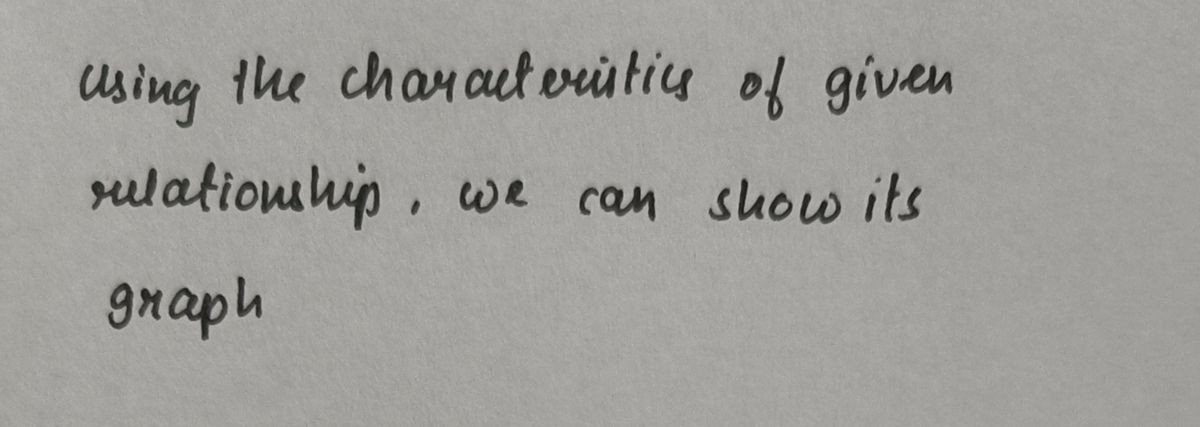 using the characteristics of given
relationship, we can show its
graph